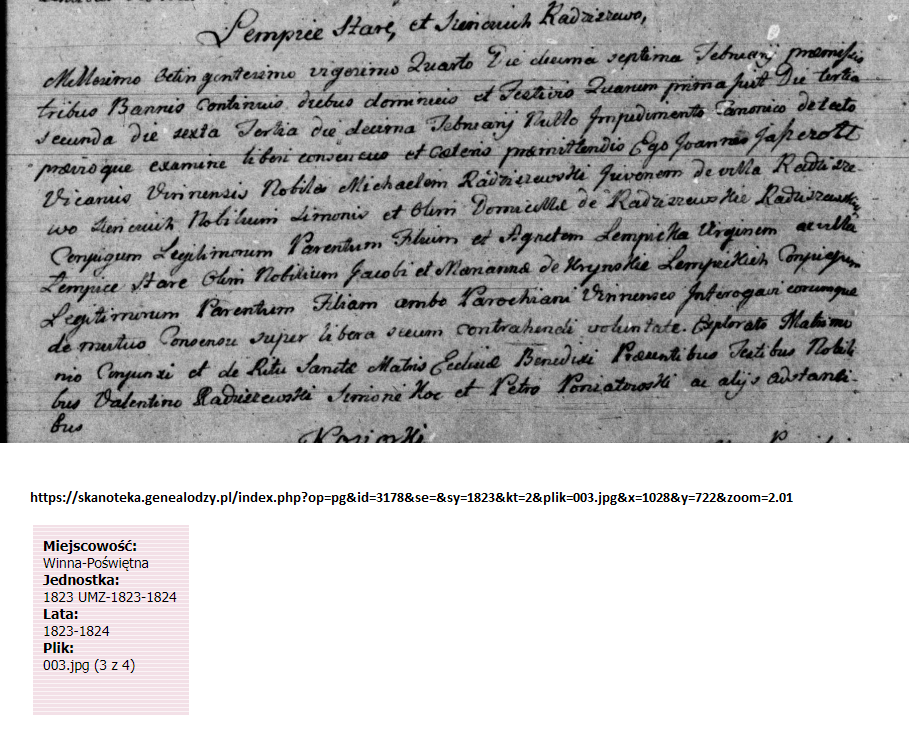 Lempice Stare, et Sieńczuch Radziszewo,
Millesimo Octingentesimo vigesimo Quarto Die decima septima Februarij præmissis
tribus Bannis Continuis diebus dominicis et Festivis Quarum prima fuit Die tertia
secunda die sexta Tertia die decima Februarij Nullo Impedimento Canonico detecto
prævioque examine liberi consensus et cæteris præmittendis Ego Joannes Jaszczołt
Vicarius Vinnensis Nobiles Michaelem Radziszewski Juvenem de villa Radzisze-
wo Sieńczuch Nobilium Simonis et Olim Domicellæ de Radziszewskie Radziszewskich
Conjugum Legitimorum Parentum Filium et Agnetem Lempicka Virginem de villa
Lempice Stare Olim Nobilium Jacobi et Marianna de Krynskie Lempickich Conjugum
Legitimorum Parentum Filiam ambo Parochiani Vinnenses Interogavi eorumque
de mutuo Consensu super libera secum contrahendi voluntate Explorato Matrimo
nio Conjunxi et de Ritu Sanctæ Matris Ecclesiæ Benedixi Præsentibus Testibus Nobili
bus Valentino Radziszewski Simone Koc et Petro Poniatowski ac alijs adstanti-
bus
https://skanoteka.genealodzy.pl/index.php?op=pg&id=3178&se=&sy=1823&kt=2&plik=003.jpg&x=1028&y=722&zoom=2.01
Miejscowość:
Winna-Poświętna
Jednostka:
1823 UMZ-1823-1824
Lata:
1823-1824
Plik:
003.jpg (3 z 4)